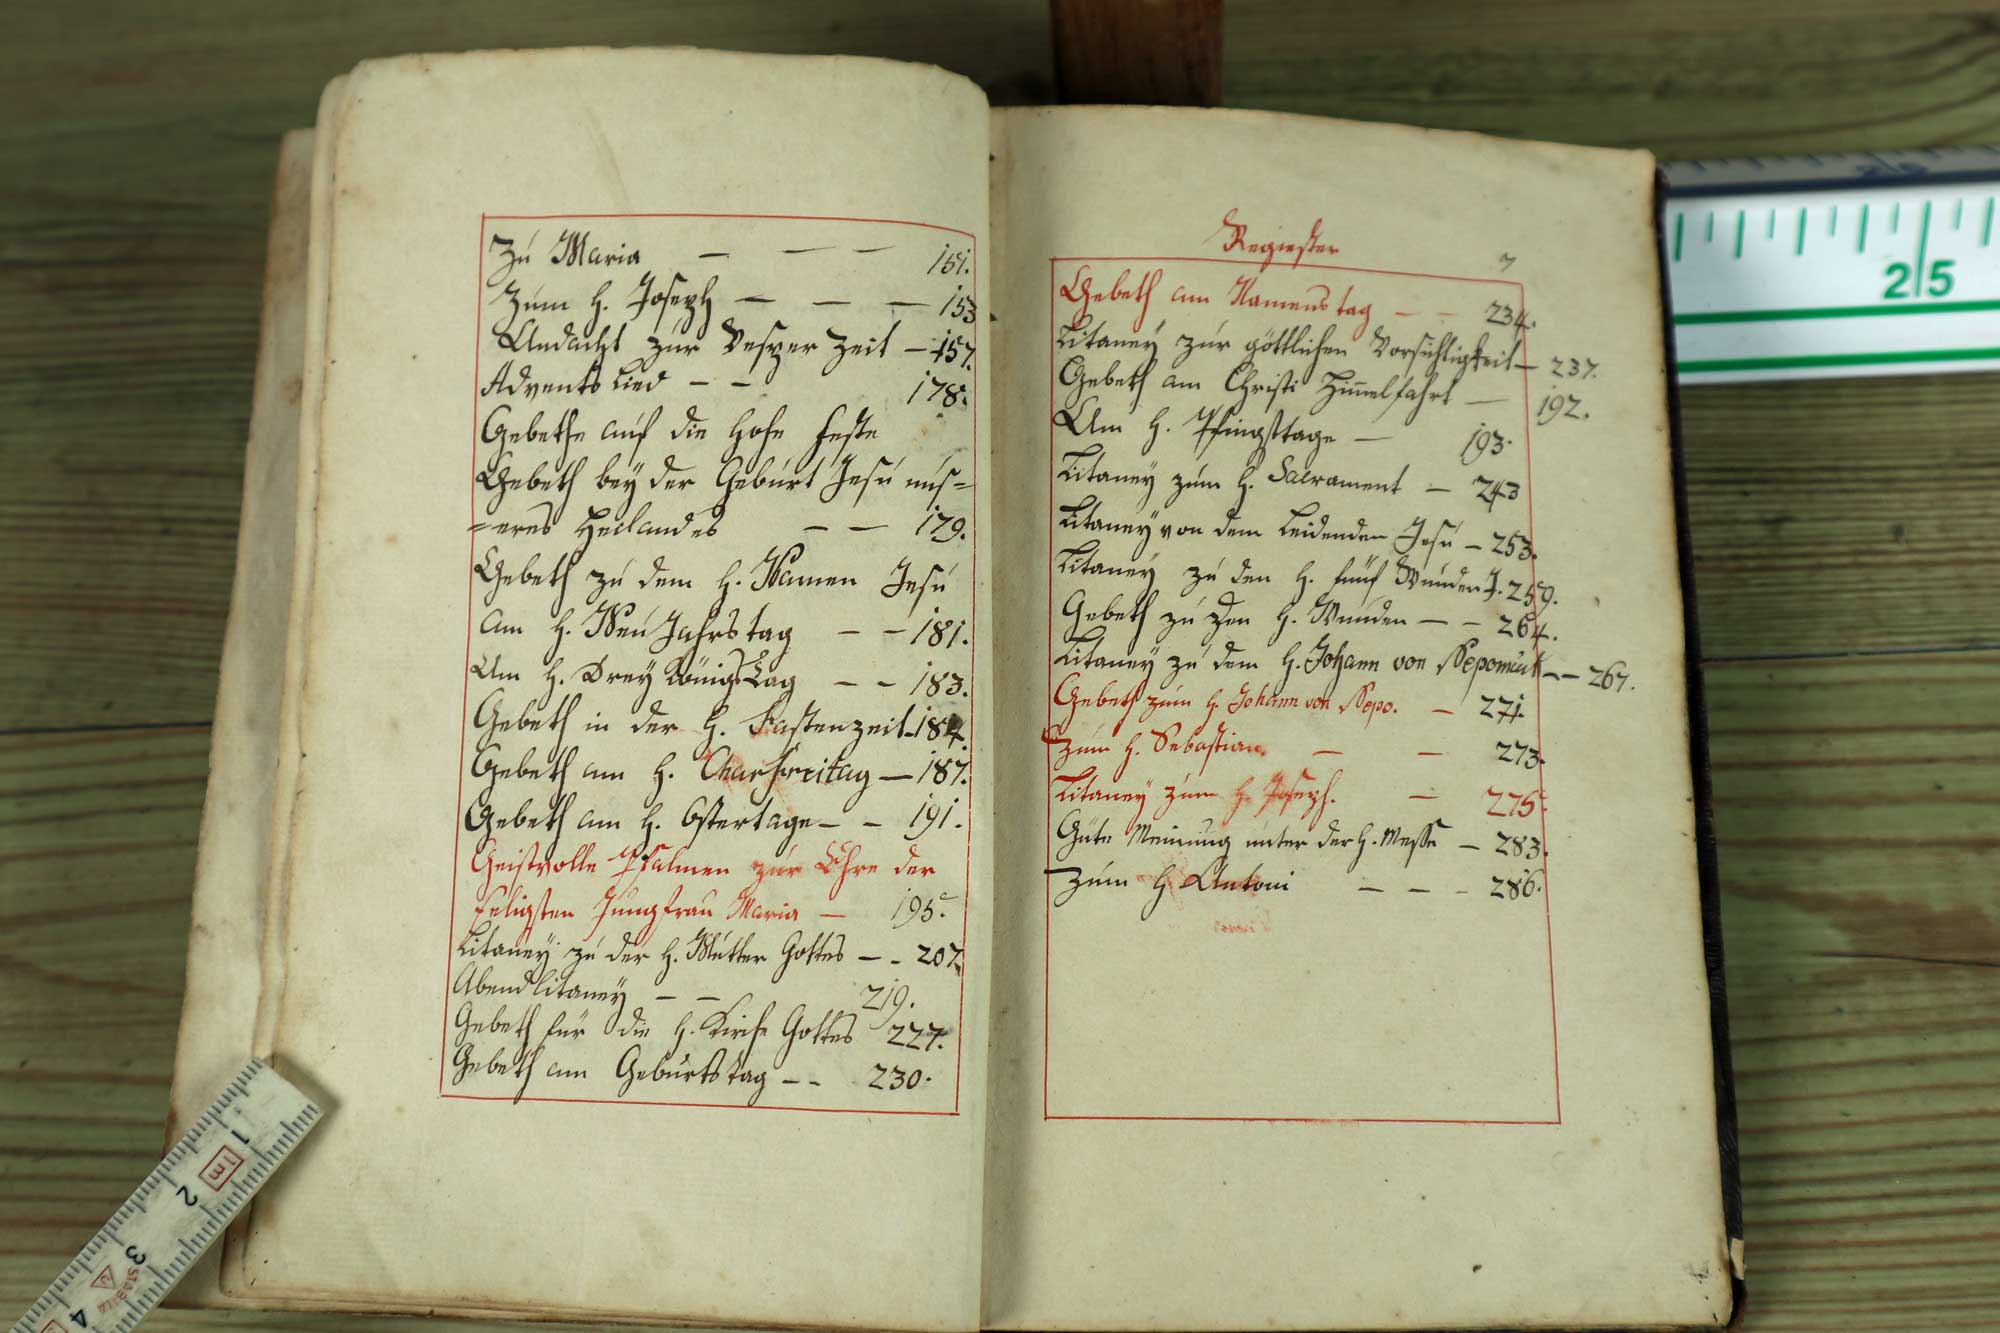 Zu Maria — — — 151.
Zum H. Joseph — — — 153
Andacht zur Vesper Zeit — 157.
Advents Lied — — 178.
Gebethe auf die Hohe Feste
Gebeth bey der Geburt Jesu uns=
=eres Heilandes — — 179.
Gebeth zu dem H. Namen Jesu
am H. Neu Jahrstag — — 181.
Am H. Drey Königs Tag — — 183.
Gebeth in der H. Fastenzeit — 184.
Gebeth am H. Charfreitag — 187.
Gebeth am H. Ostertage — — 191.
Geistvolle Psalmen zur Ehre der
seligsten Jungfrau Maria — 195.
Litaney zu der H. Mutter Gottes — — 207.
Abendlitaney — — 219.
Gebeth für die H. Kirche Gottes 227.
Gebeth am Geburtstag — — 230.
Regiester
Gebeth am Namenstag — — 234.
Litaney zur göttlichen Vorsichtigkeit — 237.
Gebeth am Christi Him̅elfahrt — 192.
Am H. Pfingsttage — 193.
Litaney zum H. Sacrament — 243
Litaney von dem Leidenden Jesu — 253.
Litaney zu den H. fünf Wunden J. 259.
Gebeth zu den H. Wunden — — 264.
Litaney zu dem H. Johann von Nepomuk — — 267.
Gebeth zum H. Johann von Nepo. — 271.
Zum H. Sebastian — — 273.
Litaney zum H. Joseph. — 275.
Gute Meinung unter der H. Messe — 283.
Zum H Antoni — — — 286.
25
1
1m
2
3
STABILA
4